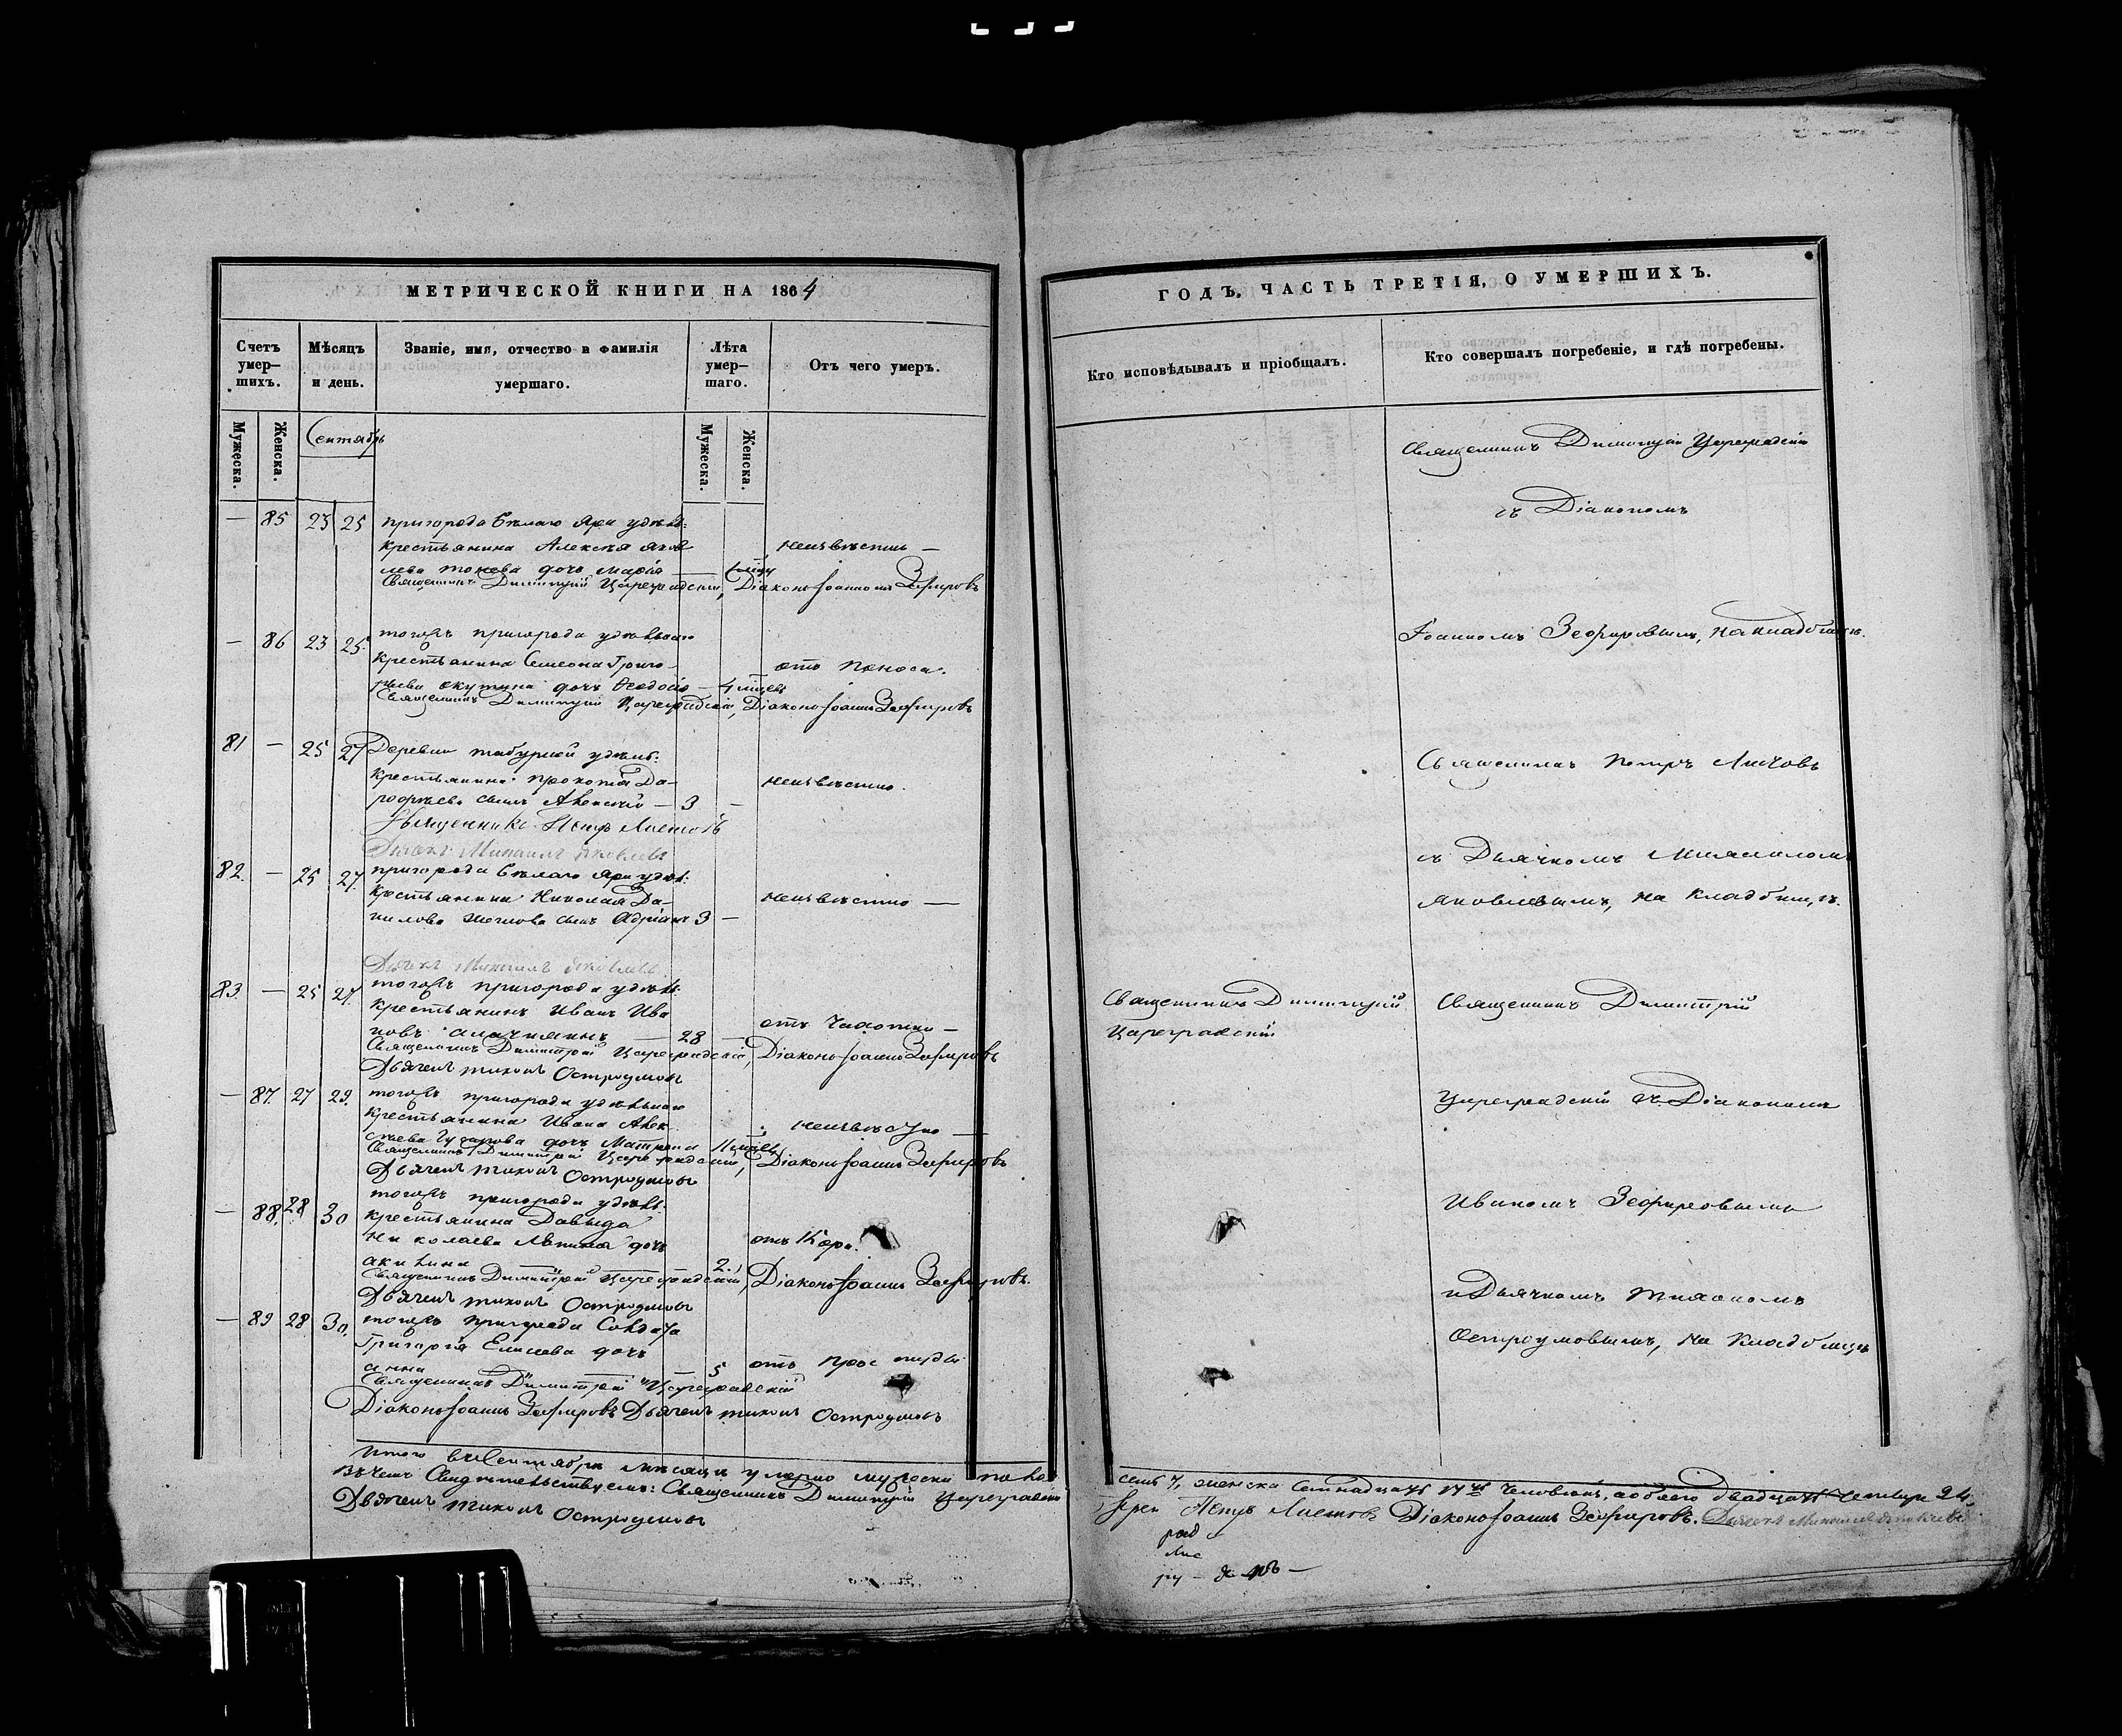 МЕТРИЧЕСКОЙ КНИГИ НА 1864
Счетъ умер-шихъ.
Мѣсяцъ и день.
Званіе, имя, отчество и фамилія умершаго.
Лѣта умер-шаго.
Отъ чего умеръ.
Мужеска.
Женска.
Сентябрь
Мужеска.
Женска.
— 85 23 25 пригорода Бѣлаго Яра удѣль:
крестьянина Алексѣя Яков
лева дочь Марія
неизвѣстно —
Священникъ Димитрій Цареградскій, Діаконъ Іоаннъ Зефировъ
— 86 23 25. тогожъ пригорода удѣльнаго
крестьянина Симеона Григо-
рьева дочь Ѳеодосія — 4 мѣсяц
отъ поноса.
Священникъ Димитрій Цареградскій, Діаконъ Іоаннъ Зефировъ
81 — 25 27 Деревни удѣль:
крестьянина Прокопія До-
рофѣева сынъ Алексѣй — 3 —
неизвѣстно.
Священникъ Петръ Листовъ
Дьячекъ Михаилъ Яковлевъ
82. — 25 27. пригорода Бѣлаго Яра удѣл:
крестьянина Николая Да-
нилова сынъ Адріанъ 3 —
неизвѣстно —
Дьячекъ Михаилъ Яковлевъ
83. — 25 27. тогожъ пригорода удѣль.
крестьянинъ Иванъ Ива
новъ — 28 —
отъ чахотки —
Священникъ Димитрій Цареградскій, Діаконъ Іоаннъ Зефировъ
Дьячекъ Тихонъ Остроумовъ
— 87. 27 29. тогожъ пригорода удѣльнаго
крестьянина Ивана Алек
сѣева дочь Матрона 11 мѣсяц
неизвѣстно —
Священникъ Димитрій Цареградскій, Діаконъ Іоаннъ Зефировъ
Дьячекъ Тихонъ Остроумовъ
— 88. 28 30 тогожъ пригорода удѣль.
крестьянина Давыда
Николаева дочь
Акилина — 2.
отъ Кори.
Священникъ Димитрій Цареградскій, Діаконъ Іоаннъ Зефировъ.
Дьячекъ Тихонъ Остроумовъ
— 89 28 30. тогожъ пригорода Солдата
Григорія Елисеева дочь
Анна — 5
отъ простуды
Священникъ Димитрій Цареградскій
Діаконъ Іоаннъ Зефировъ Дьячекъ Тихонъ Остроумовъ
Итого въ Сентябрѣ мѣсяцѣ умерло мужеска пола
Въ чемъ Свидѣтельствуемъ: Священникъ Димитрій Цареградскій
Дьячекъ Тихонъ Остроумовъ
ГОДЪ, ЧАСТЬ ТРЕТІЯ, О УМЕРШИХЪ.
Кто исповѣдывалъ и пріобщалъ.
Кто совершалъ погребеніе, и гдѣ погребены.
Священникъ Димитрій Цареградскій
съ Діакономъ
Іоанномъ Зефировымъ, на кладбищѣ.
Священникъ Петръ Листовъ
съ Дьячкомъ Михаиломъ
Яковлевымъ, на кладбищѣ.
Священникъ Димитрій
Цареградскій
Священникъ Димитрій
Цареградскій съ Діакономъ
Иваномъ Зефировымъ
и Дьячкомъ Тихономъ
Остроумовымъ, на кладбищѣ
семь 7, женска семнадцать 17 человѣкъ, а обоего двадцать четыре 24.
Іерей Петръ Листовъ Діаконъ Іоаннъ Зефировъ. Дьячекъ Михаилъ Яковлевъ